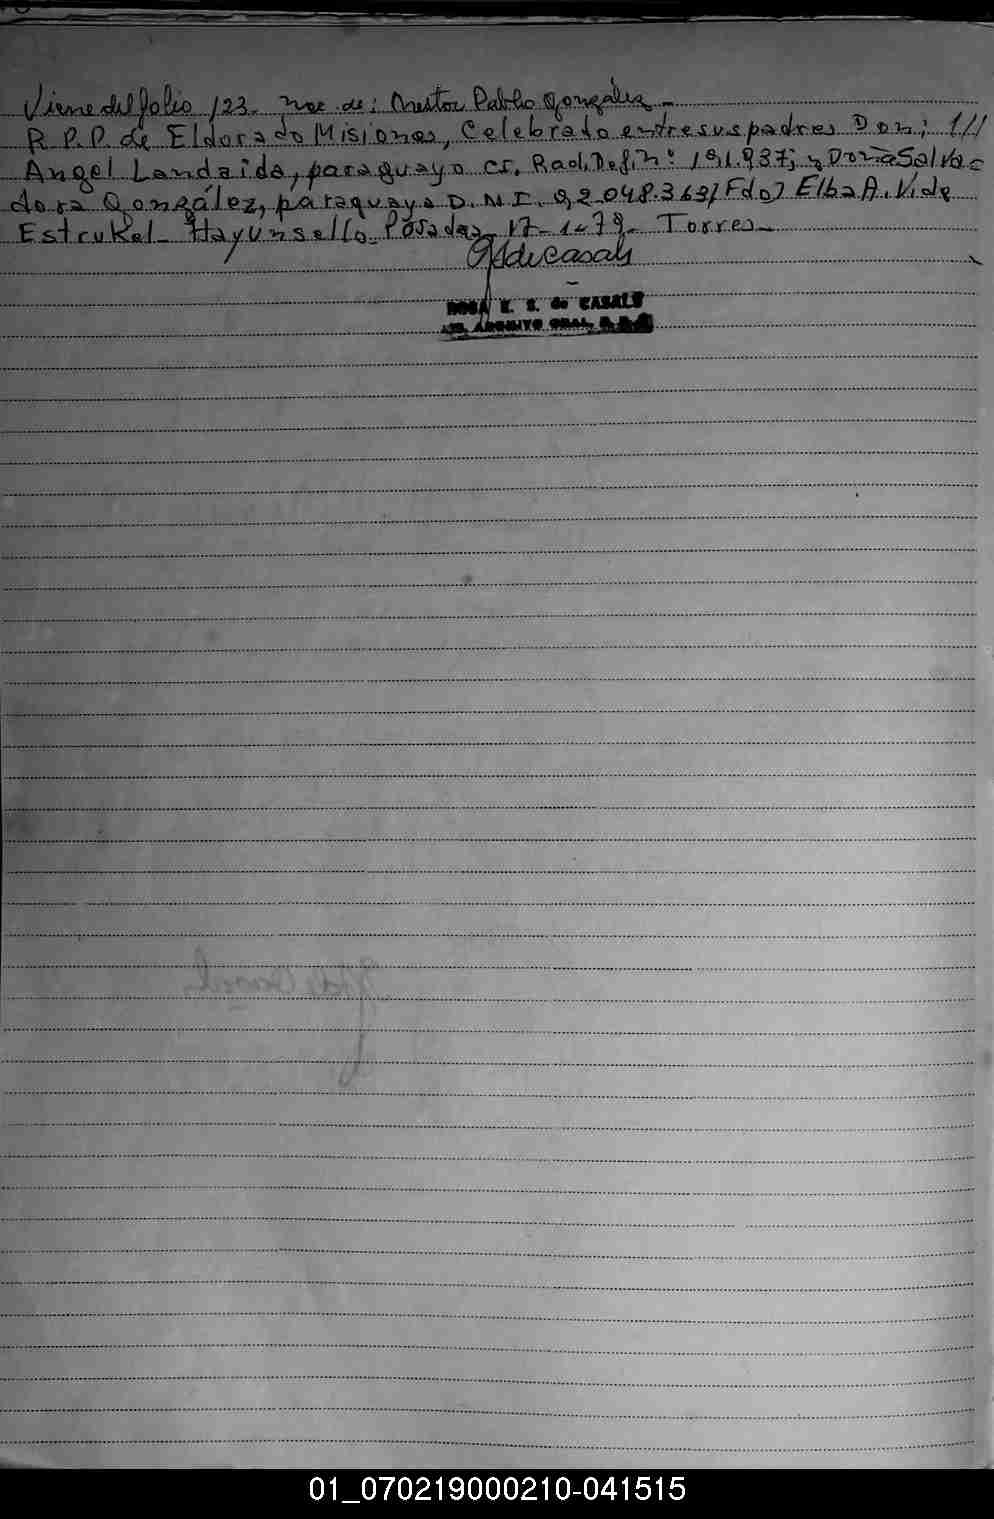 Viene del folio 123. nac. de: Nestor Pablo González
R.P.P. de Eldorado Misiones, Celebrado entre sus padres Don; 1//
Angel Landaida, paraguayo CI. Rad. Def. n: 191.937; y Doña Salva=
dora González, paraguaya D.N.I. 92.048.363/ Fdo) Elba A. Vide
Estrukel_ Hay un sello_ Posadas_ 17_1_79_ Torres_
de Casals
ROSA E. S. de CASALS
ARCHIVO GRAL.
01_070219000210-041515